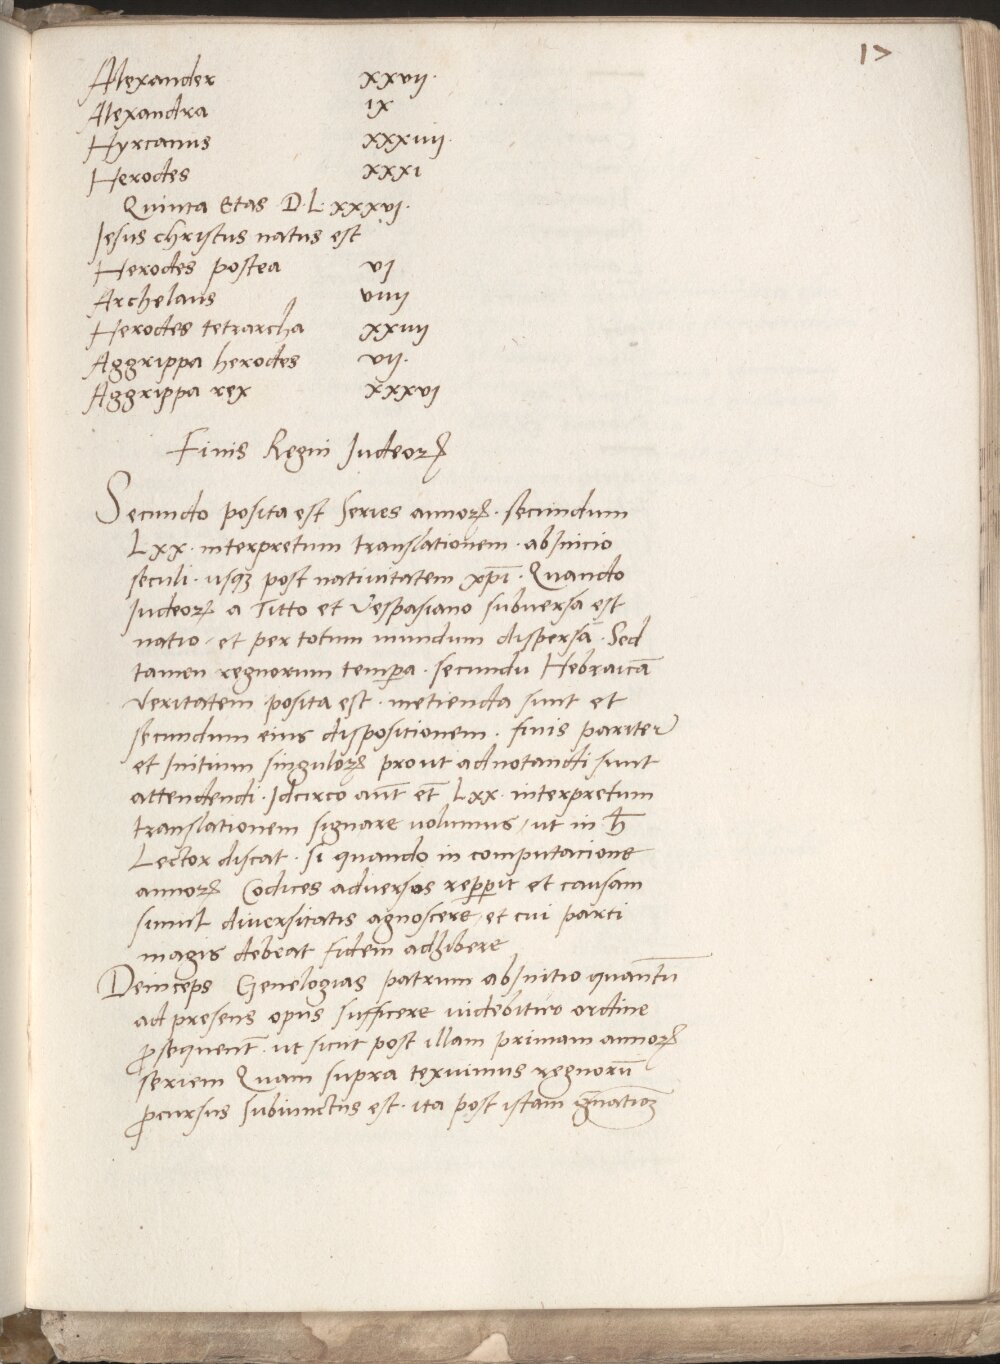 17
Alexander xxvij.
Alexandra ix
Hyrcanus xxxiiij.
Herodes xxxi
Quinta Etas D.L.xxxvj.
Jesus christus natus est
Herodes postea vj
Archelaus viiij
Herodes tetrarcha xxiiij
Aggrippa herodes vij.
Aggrippa rex xxxvj
Finis Regni Judeoꝝ
Secundo posita est Series annoꝝ. secundum
Lxx. interpretum translationem. abInicio
seculi. usqꝫ post natiuitatem xp̄i. Quando
Judeoꝝ a Titto et Vespasiano subuersa est
natio. et per totum mundum dispersā. Sed
tamen regnorum temꝑa. secundu Hebraicā
Veritatem posita est. metienda sunt et
secundum eius dispositionem. finis pariter
et Initium singuloꝝ prout adnotandi sunt
attendendi. Idcirco aūt et̄ Lxx. interpretum
translationem signare uolumus, ut in ħ
Lector discat. si quando in computacione
annoꝝ Codices aduersos reꝑꝑit et causam
simul diuersitatis agnoscere, et cui parti
magis debeat fidem adhibere
Deinceps Genelogias patrum abInitio quantū
ad presens opus sufficere uidebitur ordine
ꝓsequent̄. ut sicut post illam primam annoꝝ
seriem Quam supra texuimus regnorū
ꝓcursus subiunctus est. ita post istam gn̄atioꝫ